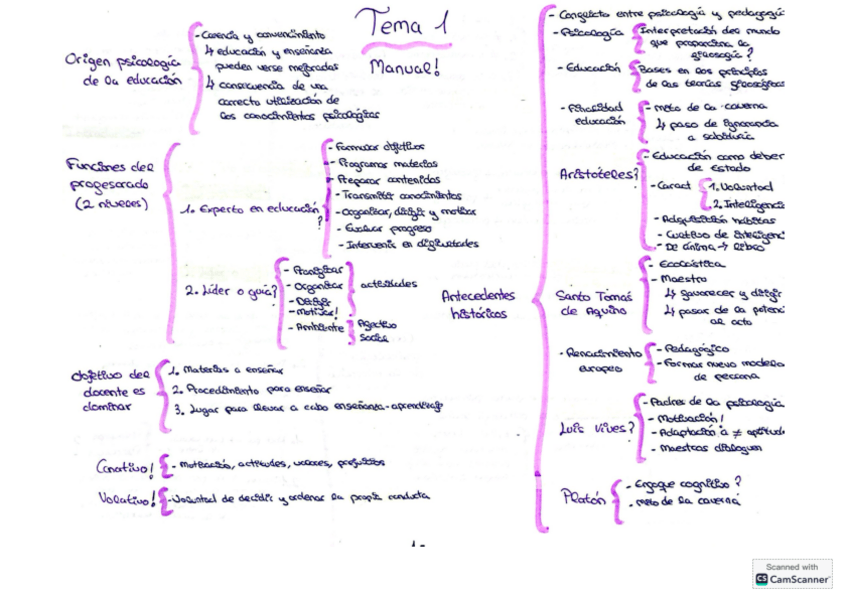 Tema 1
Manual!
Origen psicología
de la educación
- Carencia y convencimiento
↳ educación y enseñanza
pueden verse mejoradas
↳ consecuencia de una
correcta utilización de
los conocimientos psicológicos
Funciones del
profesorado
(2 niveles)
1. Experto en educación?
- Formular objetivos
- Programar materias
- Preparar contenidos
- Transmitir conocimientos
- Organizar, dirigir y motivar
- Evaluar progreso
- Intervenir en dificultades
2. Líder o guía?
- Planificar
- Organizar
- Dirigir
- Motivar!
actividades
- Ambiente
Afectivo
Social
Objetivo del
docente es
dominar
1. Materias a enseñar
2. Procedimiento para enseñar
3. Lugar para llevar a cabo enseñanza-aprendizaje
Conativo!
- Motivación, actitudes, valores, prejuicios
Volitivo!
- Voluntad de decidir y ordenar la propia conducta
Antecedentes
históricos
- Conflicto entre psicología y pedagogí
- Psicología
Interpretación del mundo
que proporciona la
filosofía?
- Educación
Bases en los principios
de las teorías filosóficas
- Finalidad
educación
- Mito de la caverna
↳ paso de ignorancia
a sabiduría
Aristóteles?
- Educación como deber
de Estado
- Caract
1. Voluntad
2. Inteligencia
- Adquisición hábitos
- Cultivo de inteligenc
- De ánima → libro
Santo Tomás
de Aquino
- Escolástica
- Maestro
↳ favorecer y dirigir
↳ pasar de la potenc
al acto
- Renacimiento
europeo
- Pedagógico
- Formar nuevo modelo
de persona
Luis Vives?
- Padres de la psicología
- Motivación!
- Adaptación a ≠ aptitud
- Maestros dialoguen
Platón
- Enfoque cognitivo?
- Mito de la caverna
Scanned with
CS CamScanner